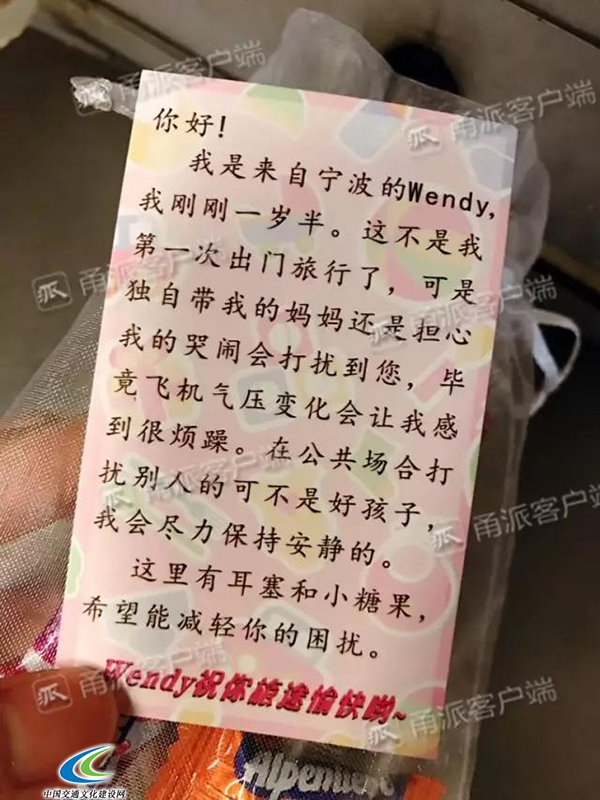 甬派客户端
甬派客户端
你好!
我是来自宁波的Wendy,
我刚刚一岁半。这不是我
第一次出门旅行了,可是
独自带我的妈妈还是担心
我的哭闹会打扰到您,毕
竟飞机气压变化会让我感
到很烦躁。在公共场合打
扰别人的可不是好孩子,
我会尽力保持安静的。
这里有耳塞和小糖果,
希望能减轻你的困扰。
Wendy祝你旅途愉快哟~
甬派客户端
甬派客户端
甬派客户端
甬派客户端
甬派客户端
甬派客户端
中国交通文化建设网